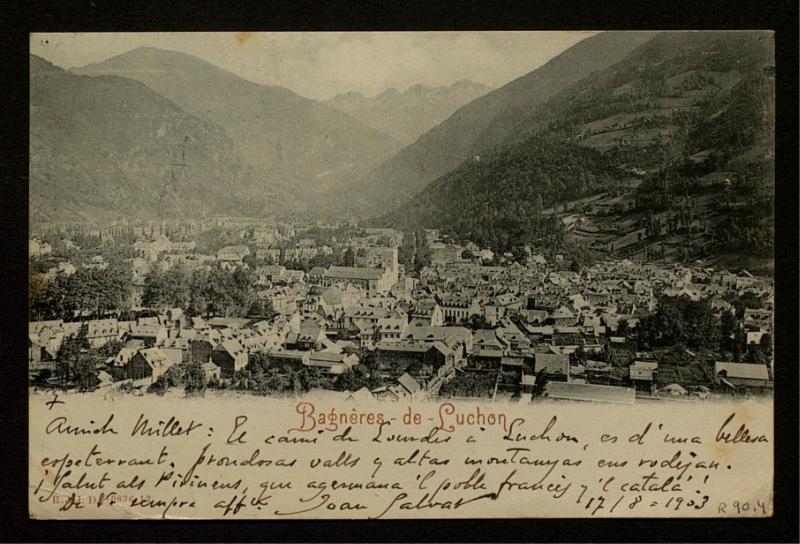 Bagnères-de-Luchon
Amich Millet: El camí de Lourdes à Luchon, es d'una bellesa
espeterrant. Frondosas valls y altas montanyas ens rodejan.
¡Salut als Pirineus, que agermana 'l poble francés y 'l catalá!
De V. sempre aff. Joan Salvat 17/8=1903
R 90.4